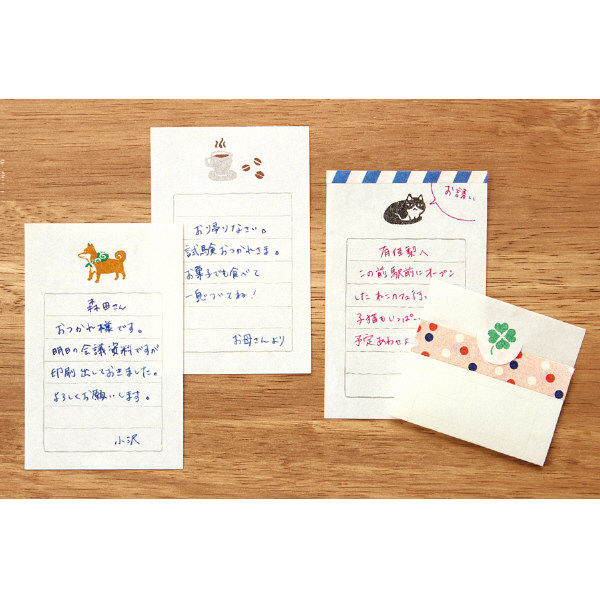 森田さん
おつかれ様です。
明日の会議資料ですが
印刷出しておきました。
よろしくお願いします。
小沢
お帰りなさい。
試験おつかれさま。
お菓子でも食べて
一息ついてね！
お母さんより
お誘い
この前駅前にオープン
したねこカフェ行
子猫もいっぱい
予定あわせよ